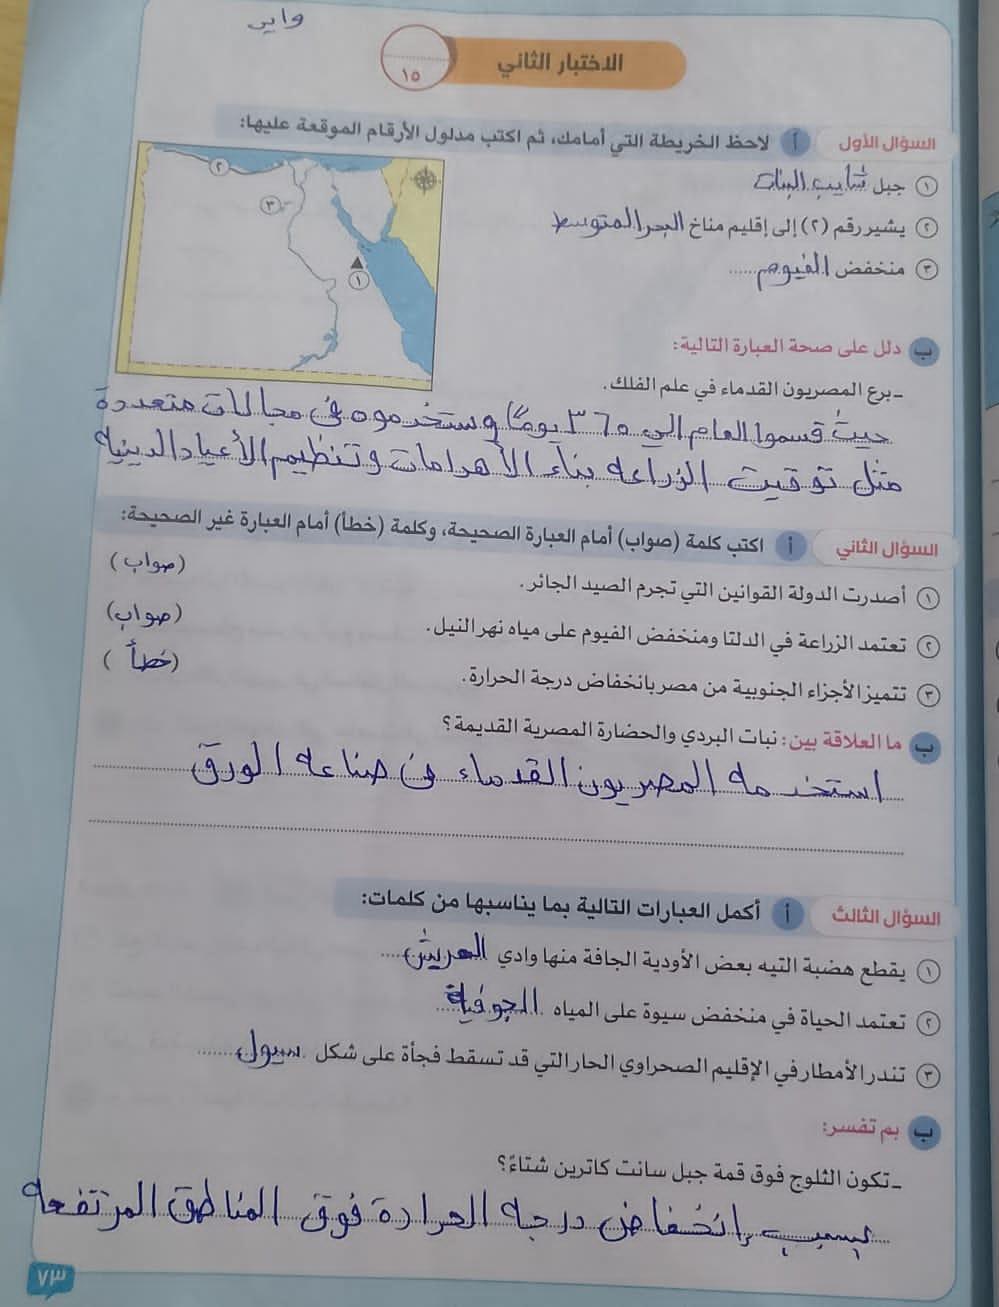 وايى
الاختبار الثاني
١٥
السؤال الأول
أ لاحظ الخريطة التي أمامك، ثم اكتب مدلول الأرقام الموقعة عليها:
١ جبل شايب البنات
٢ يشير رقم (٢) إلى إقليم مناخ البحر المتوسط
٣ منخفض الفيوم
٢
٣
١
ب دلل على صحة العبارة التالية:
- برع المصريون القدماء في علم الفلك.
حيث قسموا العام إلى ٣٦٥ يومًا وستخدموه فى مجالات متعددة
مثل توقيت الزراعه بناء الأهرامات وتنظيم الأعياد الدينيه
السؤال الثاني
أ اكتب كلمة (صواب) أمام العبارة الصحيحة، وكلمة (خطأ) أمام العبارة غير الصحيحة:
١ أصدرت الدولة القوانين التي تجرم الصيد الجائر. (صواب)
٢ تعتمد الزراعة في الدلتا ومنخفض الفيوم على مياه نهر النيل. (صواب)
٣ تتميز الأجزاء الجنوبية من مصر بانخفاض درجة الحرارة. (خطأ)
ب ما العلاقة بين: نبات البردي والحضارة المصرية القديمة؟
استخدمه المصريون القدماء فى صناعه الورق
السؤال الثالث
أ أكمل العبارات التالية بما يناسبها من كلمات:
١ يقطع هضبة التيه بعض الأودية الجافة منها وادي العريش
٢ تعتمد الحياة في منخفض سيوة على المياه الجوفية
٣ تندر الأمطار في الإقليم الصحراوي الحار التي قد تسقط فجأة على شكل سيول
ب بم تفسر:
- تكون الثلوج فوق قمة جبل سانت كاترين شتاءً؟
بسبب إنخفاض درجه الحرارة فوق المناطق المرتفعه
٧٣